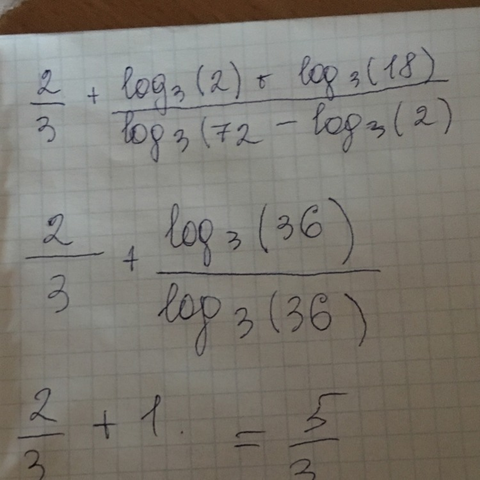 2/3 + (log₃(2) + log₃(18))/(log₃(72 - log₃(2))
2/3 + log₃(36)/log₃(36)
2/3 + 1. = 5/3